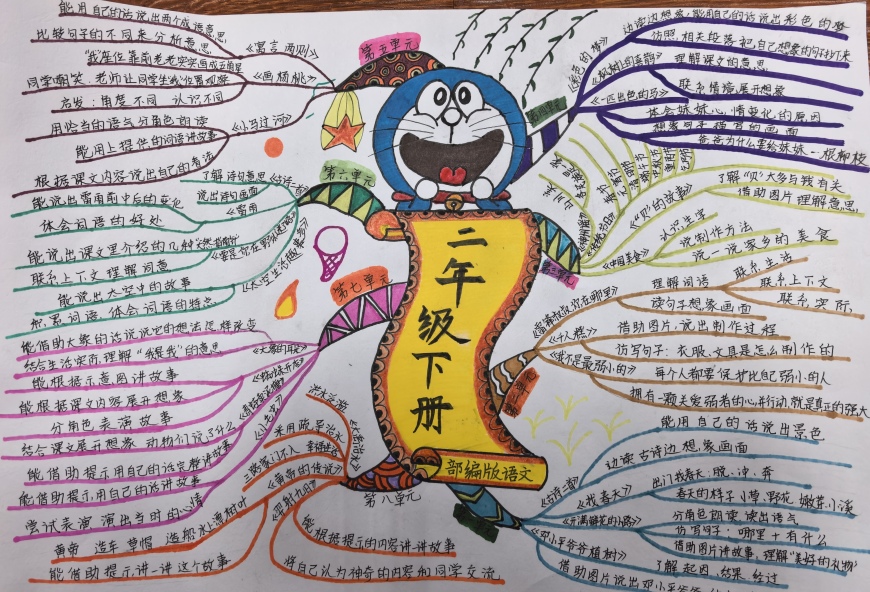 二年级下册
部编版语文
第五单元
《寓言两则》
能用自己的话说出两个成语意思
比较句子的不同来分析意思
《画杨桃》
同学嘲笑,老师让同学坐我位置观察
启发:角度不同 认识不同
《小马过河》
用恰当的语气分角色的读
能用上提供的词语讲故事
根据课文内容说出自己的看法
第六单元
了解诗句意思
说出诗句画面
《雷雨》
能说出雷雨前中后的变化
体会词语的好处
联系上下文理解词意
能说出太空中的故事
积累词语,体会词语的特点
第七单元
《大象的耳朵》
能借助大象的话说说它的想法怎样改变
结合生活实际,理解“我是我”的意思
能根据示意图讲故事
能根据课文内容展开想象
分角色表演故事
结合课文展开想象 动物们说了什么
能借助提示用自己的话完整讲故事
能借助提示,用自己的话讲故事
尝试表演 演出当时的心情
第八单元
洪水泛滥
采用疏导治水
三路家门不入
《黄帝的传说》
黄帝 造车 草帽 造船 水漂树叶
能借助提示,讲一讲这个故事
《羿射九日》
能根据提示的内容讲一讲故事
将自己认为神奇的内容和同学交流
第四单元
边读边想象,能用自己的话说出彩色的梦
仿照相关段落把自己想象的句子写下来
《枫树上的喜鹊》
理解课文的意思
联系情境展开想象
《一匹出色的马》
体会妹妹心情变化的原因
爸爸为什么要给妹妹一根柳枝
第三单元
《“贝”的故事》
了解“贝”大多与钱有关
借助图片理解意思
《中国美食》
认识生字
说制作方法
说一说家乡的美食
《雷锋叔叔,你在哪里》
理解词语
联系生活
联系上下文
联系实际
读句子想象画面
《千人糕》
借助图片,说出制作过程
仿写句子:衣服、文具是怎么制作的
《我不是最弱小的》
每个人都要保护比自己弱小的人
拥有一颗关爱弱者的心并行动,就是真正的强大
《古诗二首》
能用自己的话说出景色
边读古诗边想象画面
《找春天》
出门找春天:脱、冲、奔
春天的样子:小草、野花、嫩芽、小溪
《开满鲜花的小路》
分角色朗读,读出语气
仿写句子:哪里+有什么
借助图片讲故事,理解“美好的礼物”
《邓小平爷爷植树》
了解起因、结果、经过